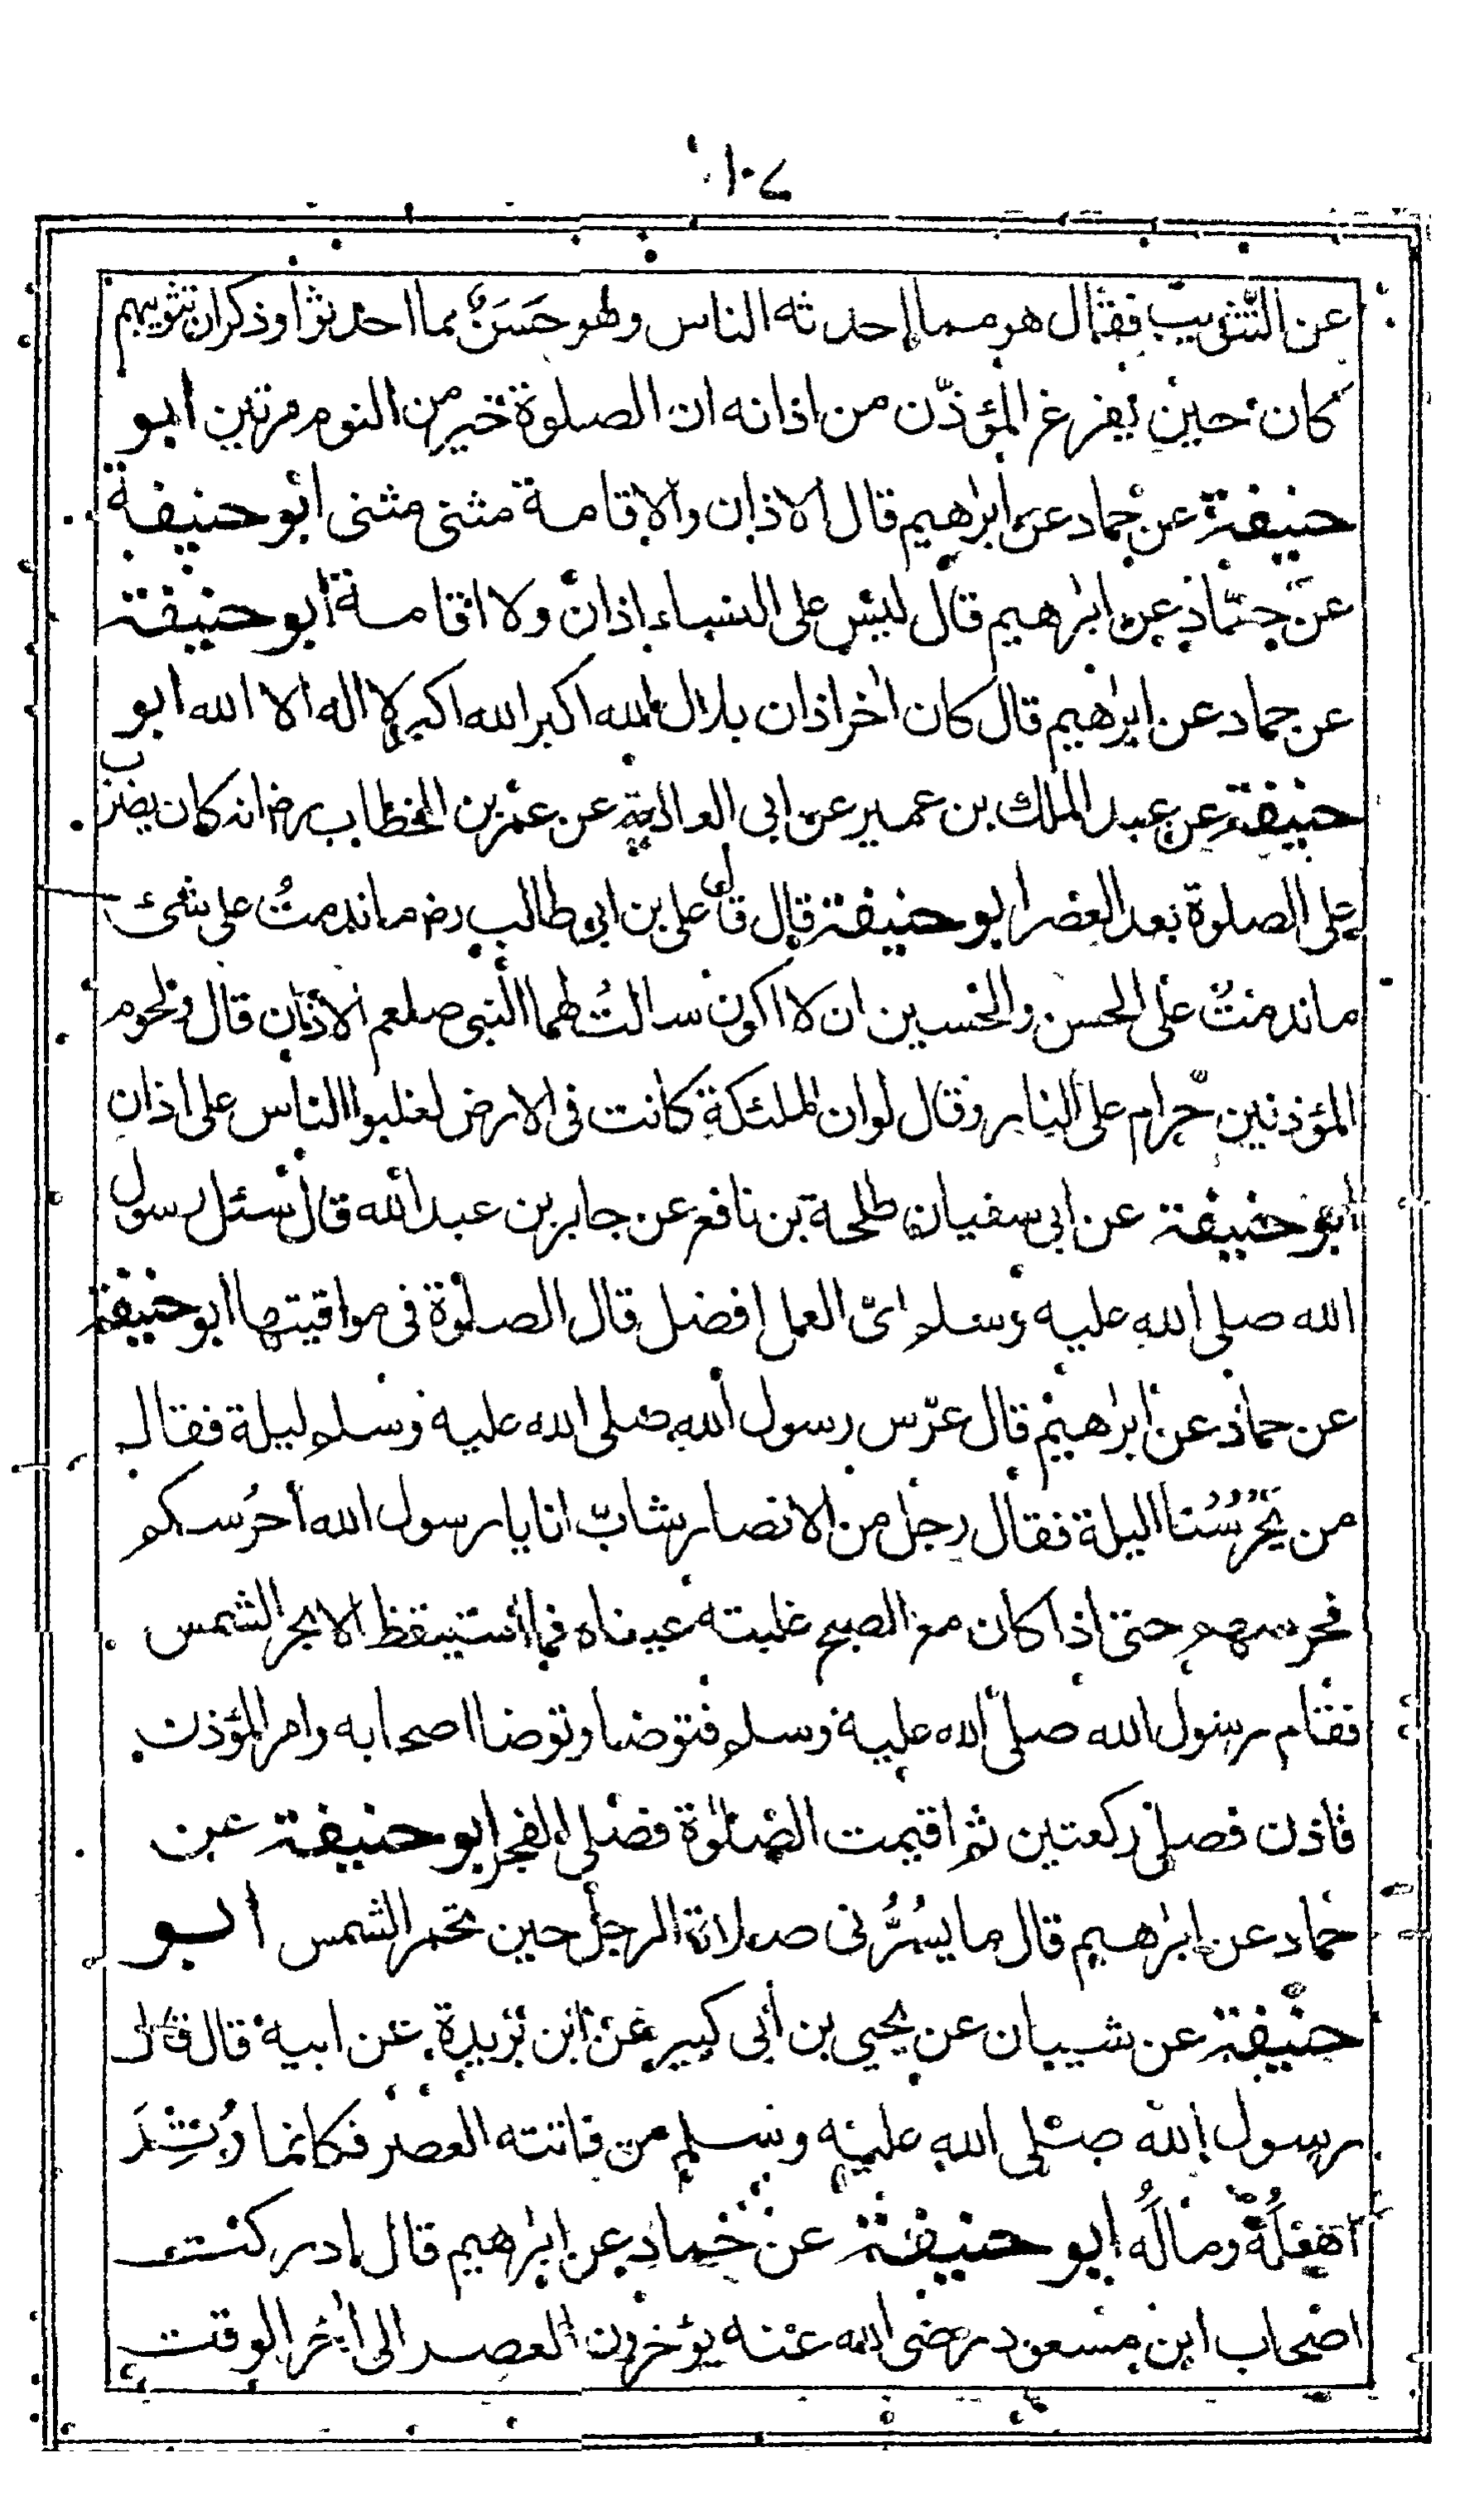 ١٠٧
عن التثويب فقال هو مما احدثه الناس وهو حَسَنٌ مما احدثوا وذكر ان تثويبهم
كان حين يفرغ المؤذّن من اذانه ان الصلوة خير من النوم مرتين ابو
حنيفة عن حماد عن ابرٰهيم قال الاذان والاقامة مثنى مثنى ابو حنيفة
عن حمّاد عن ابرٰهيم قال ليس على النساء اذان ولا اقامة ابو حنيفة
عن حماد عن ابرٰهيم قال كان اٰخر اذان بلال الله اكبر الله اكبر لا اله الا الله ابو
حنيفة عن عبد الملك بن عمير عن ابى العالية عن عمر بن الخطاب رض انه كان يضرب
على الصلوة بعد العصر ابو حنيفة قال قال على بن ابى طالب رض ما ندمتُ على شئ
ما ندمتُ على الحسن والحسين ان لا اكون سالتُ لهما النبى صلعم الاذان قال ولحوم
المؤذنين حرام على النار وقال لو ان الملئكة كانت فى الارض لغلبوا الناس على اذان
ابو حنيفة عن ابى سفيان طلحة بن نافع عن جابر بن عبد الله قال سئل رسول
الله صلى الله عليه وسلم اىّ العمل افضل قال الصلوة فى مواقيتها ابو حنيفة
عن حماد عن ابرٰهيم قال عرّس رسول الله صلى الله عليه وسلم ليلة فقال
من يَحْرُسُنا الليلة فقال رجل من الانصار شابّ انا يا رسول الله احرُسكم
فحرسهم حتى اذا كان مع الصبح غلبته عيناه فما استيقظ الا بحر الشمس
فقام رسول الله صلى الله عليه وسلم فتوضا وتوضا اصحابه وامر المؤذن
فاذن فصلى ركعتين ثم اقيمت الصلوة فصلى الفجر ابو حنيفة عن
حماد عن ابرٰهيم قال ما يسُرُّنى صلاة الرجل حين تحمر الشمس ابو
حنيفة عن شيبان عن يحيى بن أبى كبير عن ابن بريدة عن ابيه قال قال
رسول الله صلى الله عليه وسلم من فاتته العصر فكانما
اَهْلَهُ ومالَه ابو حنيفة عن حماد عن ابرٰهيم قال ادركت
اصحاب ابن مسعود رضى الله عنه يؤخرون العصر الى اٰخر الوقت